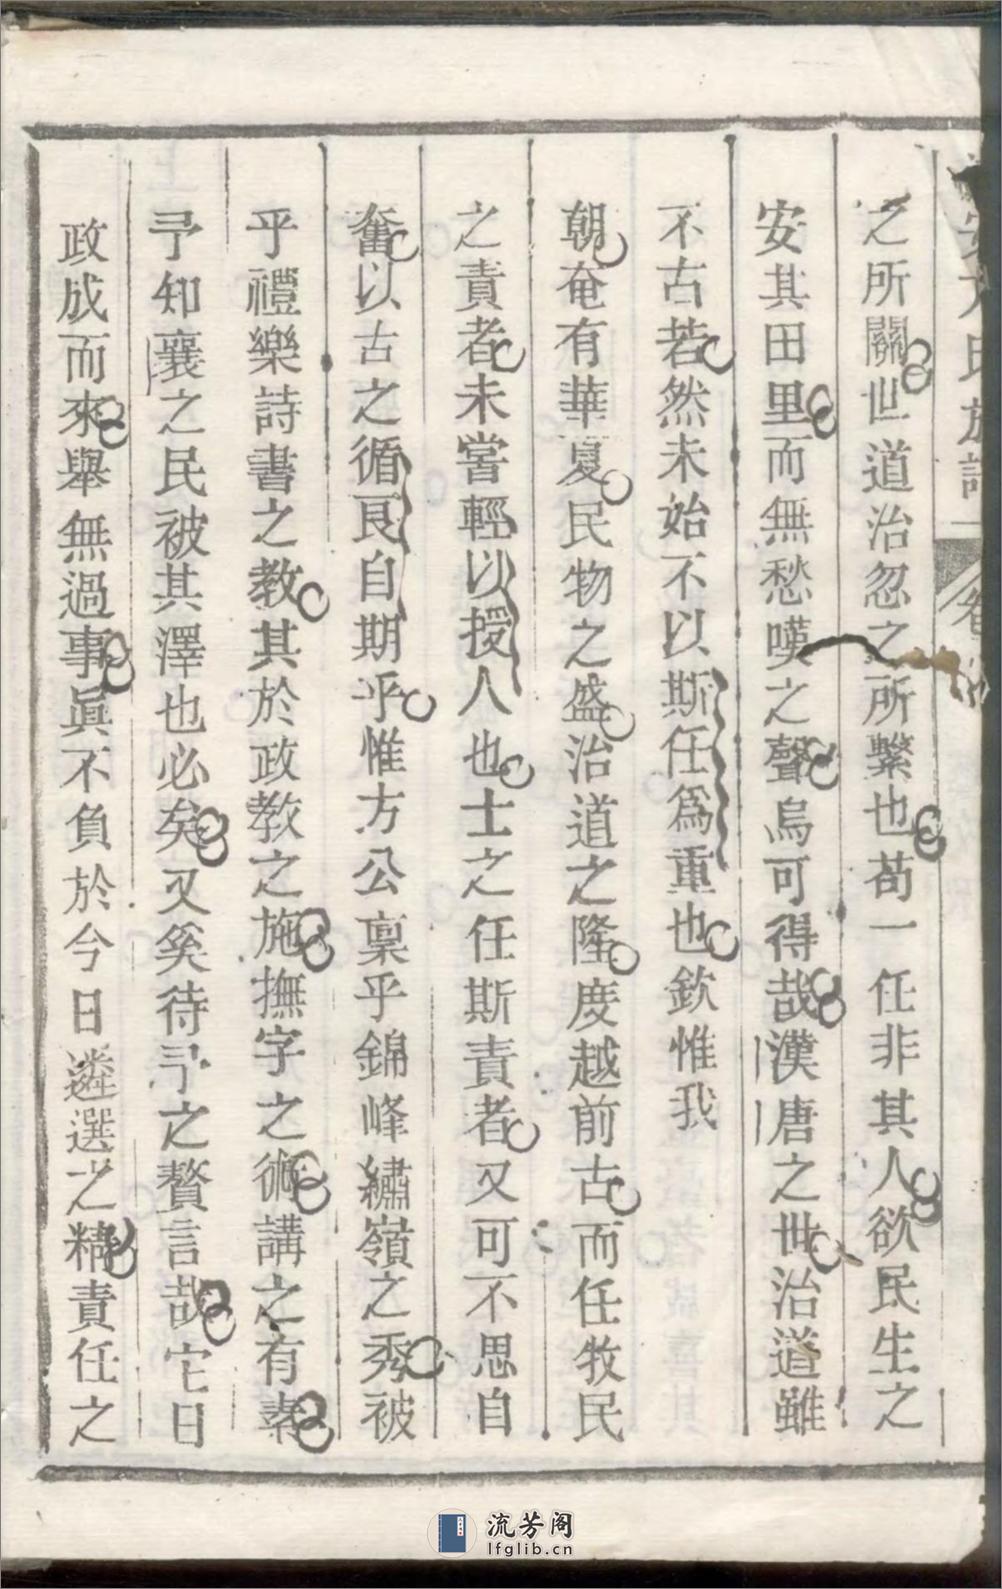 之所關世道治忽之所繫也苟一任非其人欲民生之
安其田里而無愁嘆之聲烏可得哉漢唐之世治道雖
不古若然未始不以斯任爲重也欽惟我
朝奄有華夏民物之盛治道之隆度越前古而任牧民
之責者未嘗輕以授人也士之任斯責者又可不思自
奮以古之循良自期乎惟方公稟乎錦峰繡嶺之秀被
乎禮樂詩書之教其於政教之施撫字之術講之有素
予知襄之民被其澤也必矣又奚待予之贅言哉它日
政成而來舉無過事眞不負於今日遴選之精責任之
流芳阁
lfglib.cn